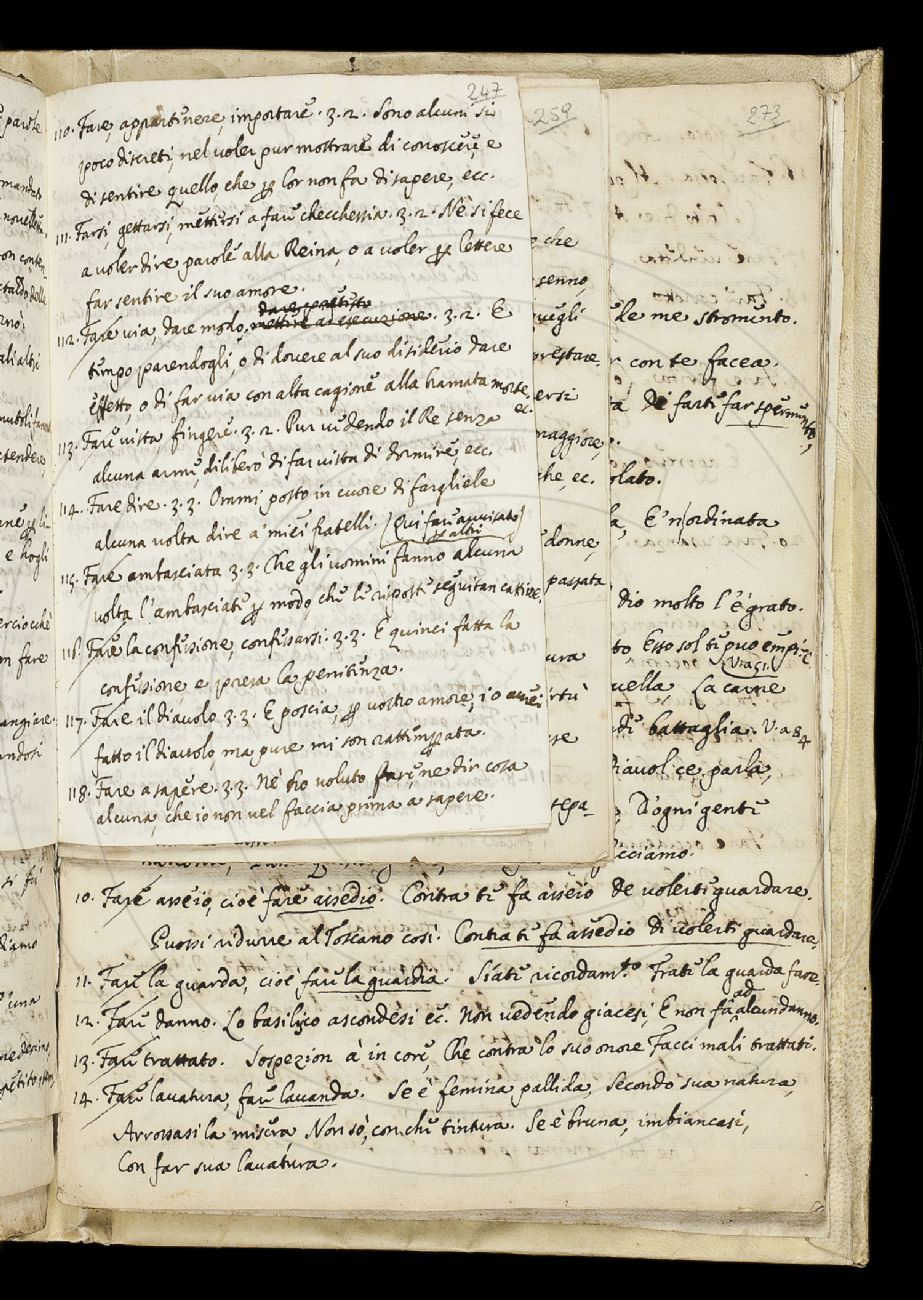 247
110. Fare, appartinere, importare. 3. 2. Sono alcuni sì
poco discreti, nel voler pur mostrare di conoscere, e
di sentire quello, che per lor non fa di sapere, ecc.
111. Farsi, gettarsi, mettersi a fare checchessia. 3. 2. Nè si fece
a voler dire parole alla Reina, o a voler per lettere
far sentire il suo amore.
112. Fare via, dare modo, mettire ad esecuzione. 3. 2. E
tempo parendogli, o di dovere al suo disiderio dare
effetto, o di far via con alta cagione alla bramata morte, ec.
113. Fare vista, fingere. 3. 2. Pur vedendo il Re senza
alcuna arme, diliberò di far vista di dormire, ecc
114. Fare dire. 3. 3. Ommi posto in cuore di fargliele
alcuna volta dire a' miei fratelli. [Qui fare avvisato
per altri]
115. Fare ambasciata 3. 3. Che gli uomini fanno alcuna
volta l'ambasciate per modo, che le risposte seguitan cattive.
116. Fare la confessione, confessarsi. 3. 3. E quinci fatta la
confessione e presa la penitenza.
117. Fare il diavolo 3. 3. E poscia, per vostro amore, i o avrei
fatto il diavolo, ma pure mi son rattemperata.
118. Fare a sapere. 3. 3. Nè ho voluto farne, ne dir cosa
alcuna, che io non vel faccia prima a sapere.
259
che
senno,
quegli
prestare.
ersi
maggiore,
che, ec.
donne,
passata
ura
rtù
273
le me stromento.
r con te facea.
ta de' farti far sperimento,
olato.
a, E' n ordinata
dio molto l' è grato.
to Esso sol ti può empire
uella, La carne
di battaglia. V. a 84
Diavol ce parla,
, D'ogni gente
cciamo.
10. Fare asseio, cioè fare assedio. Contra te fa asseio de volerti guardare.
Puossi ridurre al Toscano così. Contra te fa assedio di volerti guardare.
11. Fare la guarda, cioè fare la guardia. Siate ricordamto Frate la guarda fare.
12. Fare danno. Lo basilico ascondesi ec. Non vedendo giacesi, E non fa ad alcun danno.
13. Fare trattato. Sospezion à in core, Che contra lo suo onore Facci mali trattati.
14. Fare lavatura, fare lavanda. Se è femina pallida, Secondo sua natura,
Arrossasi la misera, Non so, con che tintura. Se è bruna, imbiancasi,
Con far sua lavatura.